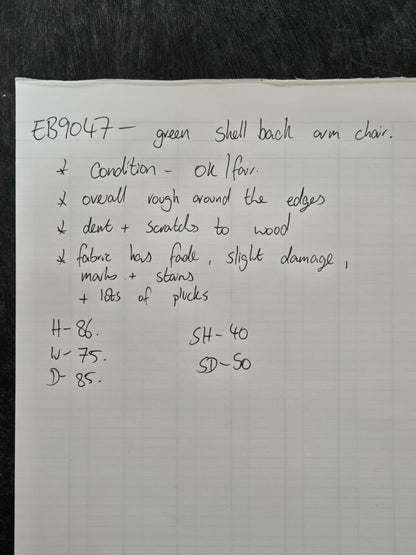 EB9047 - green shell back arm chair.
* Condition - ok/fair.
* overall rough around the edges
* dent + scratchs to wood
* fabric has fade, slight damage,
marks + stains
+ lots of plucks
H - 86.
W - 75.
D - 85.
SH - 40
SD - 50